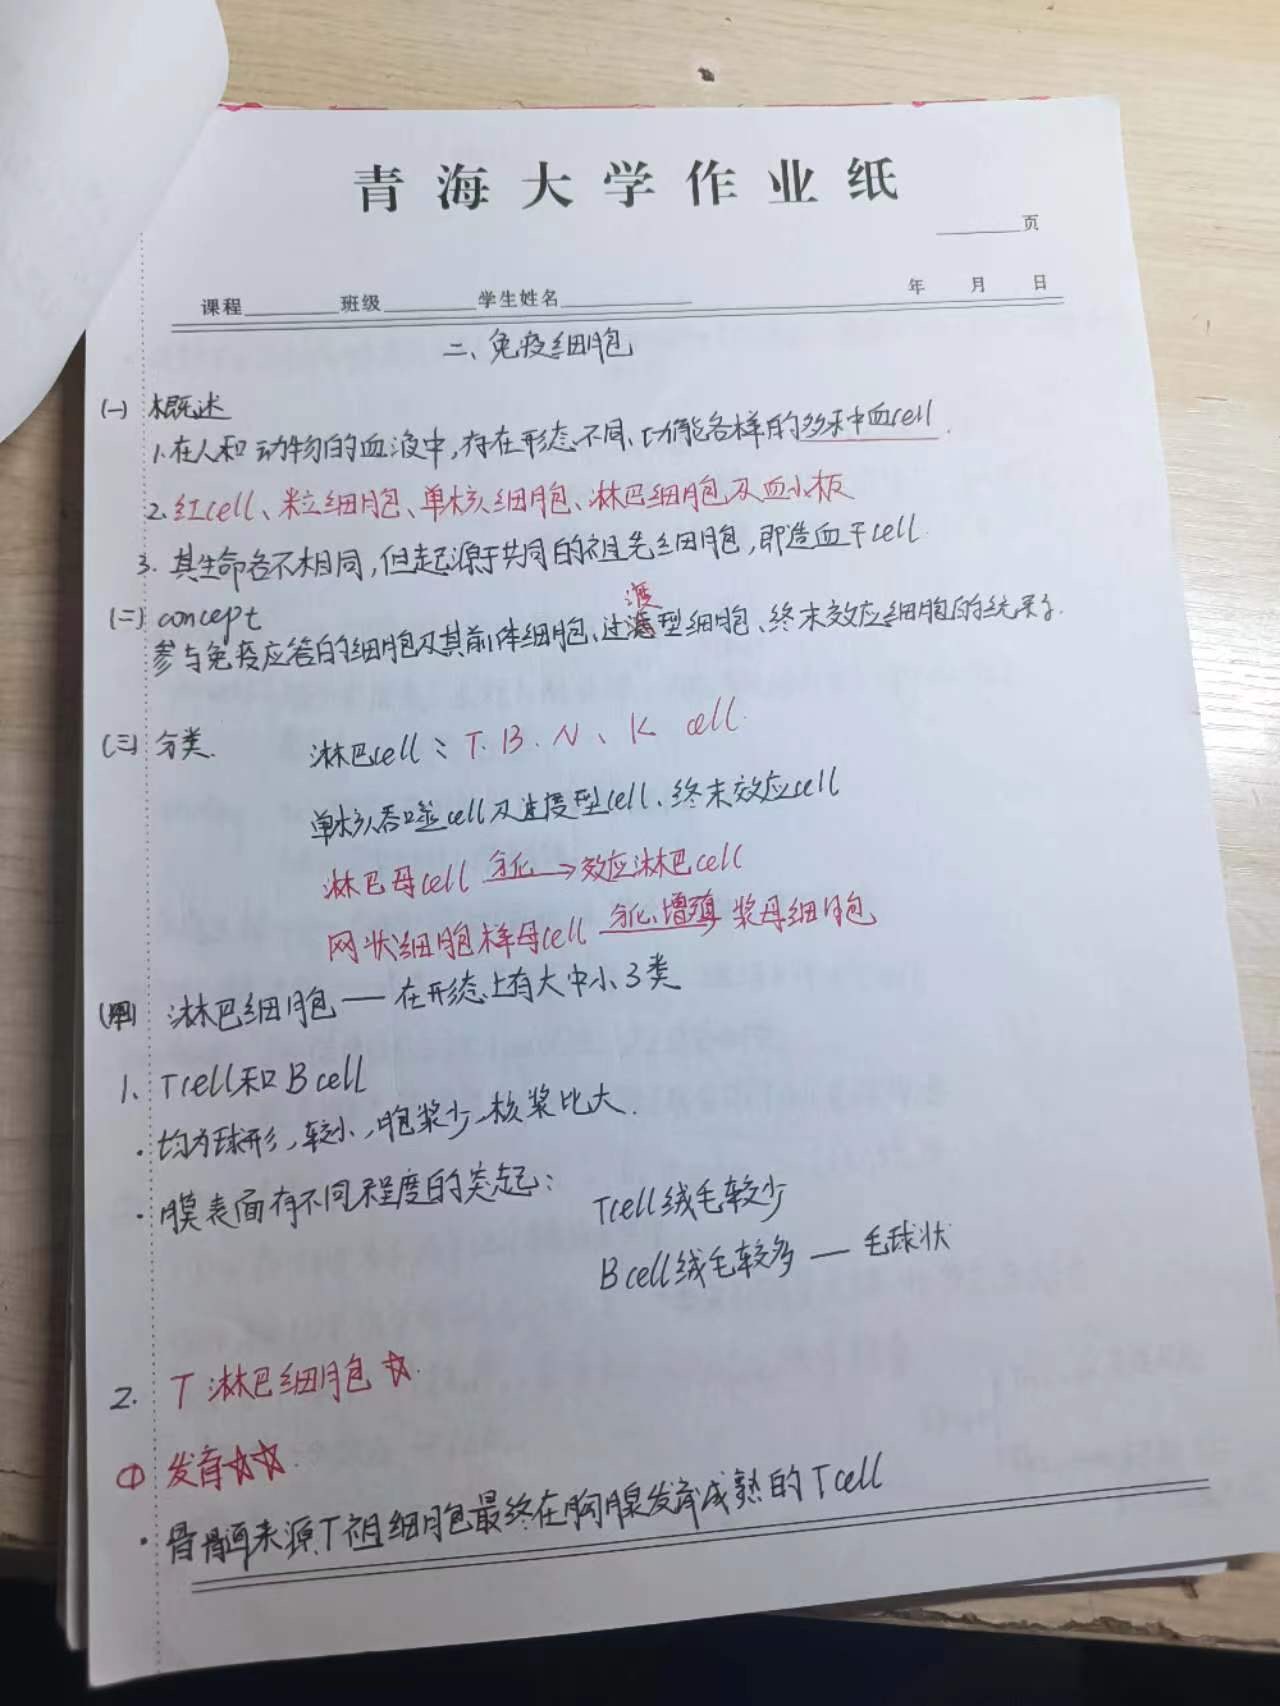 青海大学作业纸
页
课程 班级 学生姓名 年 月 日
二、免疫细胞
(一) 概述
1. 在人和动物的血液中,存在形态不同、功能各样的多种血cell.
2. 红cell、粒细胞、单核细胞、淋巴细胞及血小板
3. 其生命各不相同,但起源于共同的祖先细胞,即造血干cell.
(二) concept
参与免疫应答的细胞及其前体细胞、过渡型细胞、终末效应细胞的统系.
(三) 分类.
淋巴cell: T. B. N、K cell.
单核吞噬cell及过度型cell、终末效应cell
淋巴母cell 分化→效应淋巴cell
网状细胞样母cell 分化、增殖 浆母细胞
(四) 淋巴细胞 — 在形态上有大中小3类
1、Tcell和Bcell
· 均为球形,较小,胞浆少,核浆比大.
· 膜表面有不同程度的突起:
Tcell绒毛较少
Bcell绒毛较多 — 毛球状
2. T淋巴细胞☆.
① 发育☆☆.
· 骨髓来源T祖细胞最终在胸腺发育成熟的Tcell